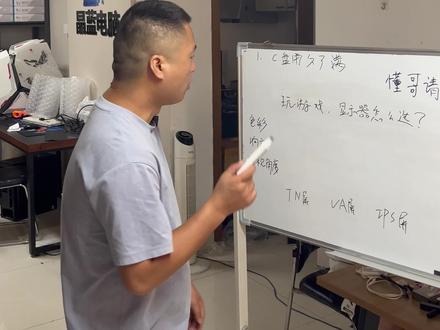 晶蓝电脑
1. C盘用久了满
懂哥请
玩游戏，显示器怎么选？
色彩
响
视角度
TN屏 VA屏 IPS屏